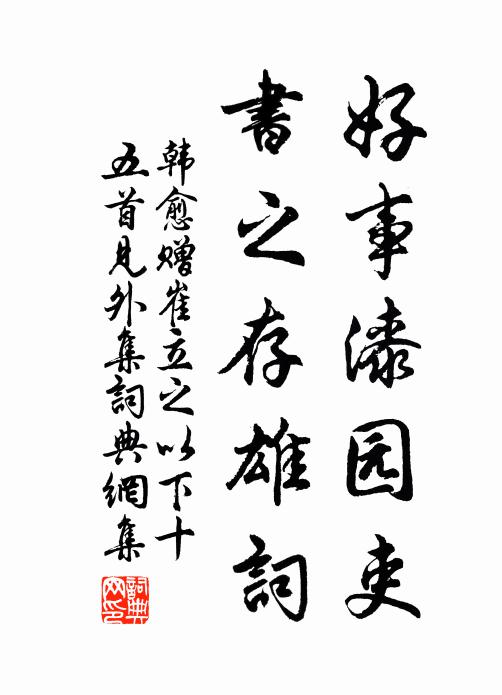 好事漆园吏
書之存雄詞
韩愈赠崔立之以下十
五首見外集詞典網集
詞典网印